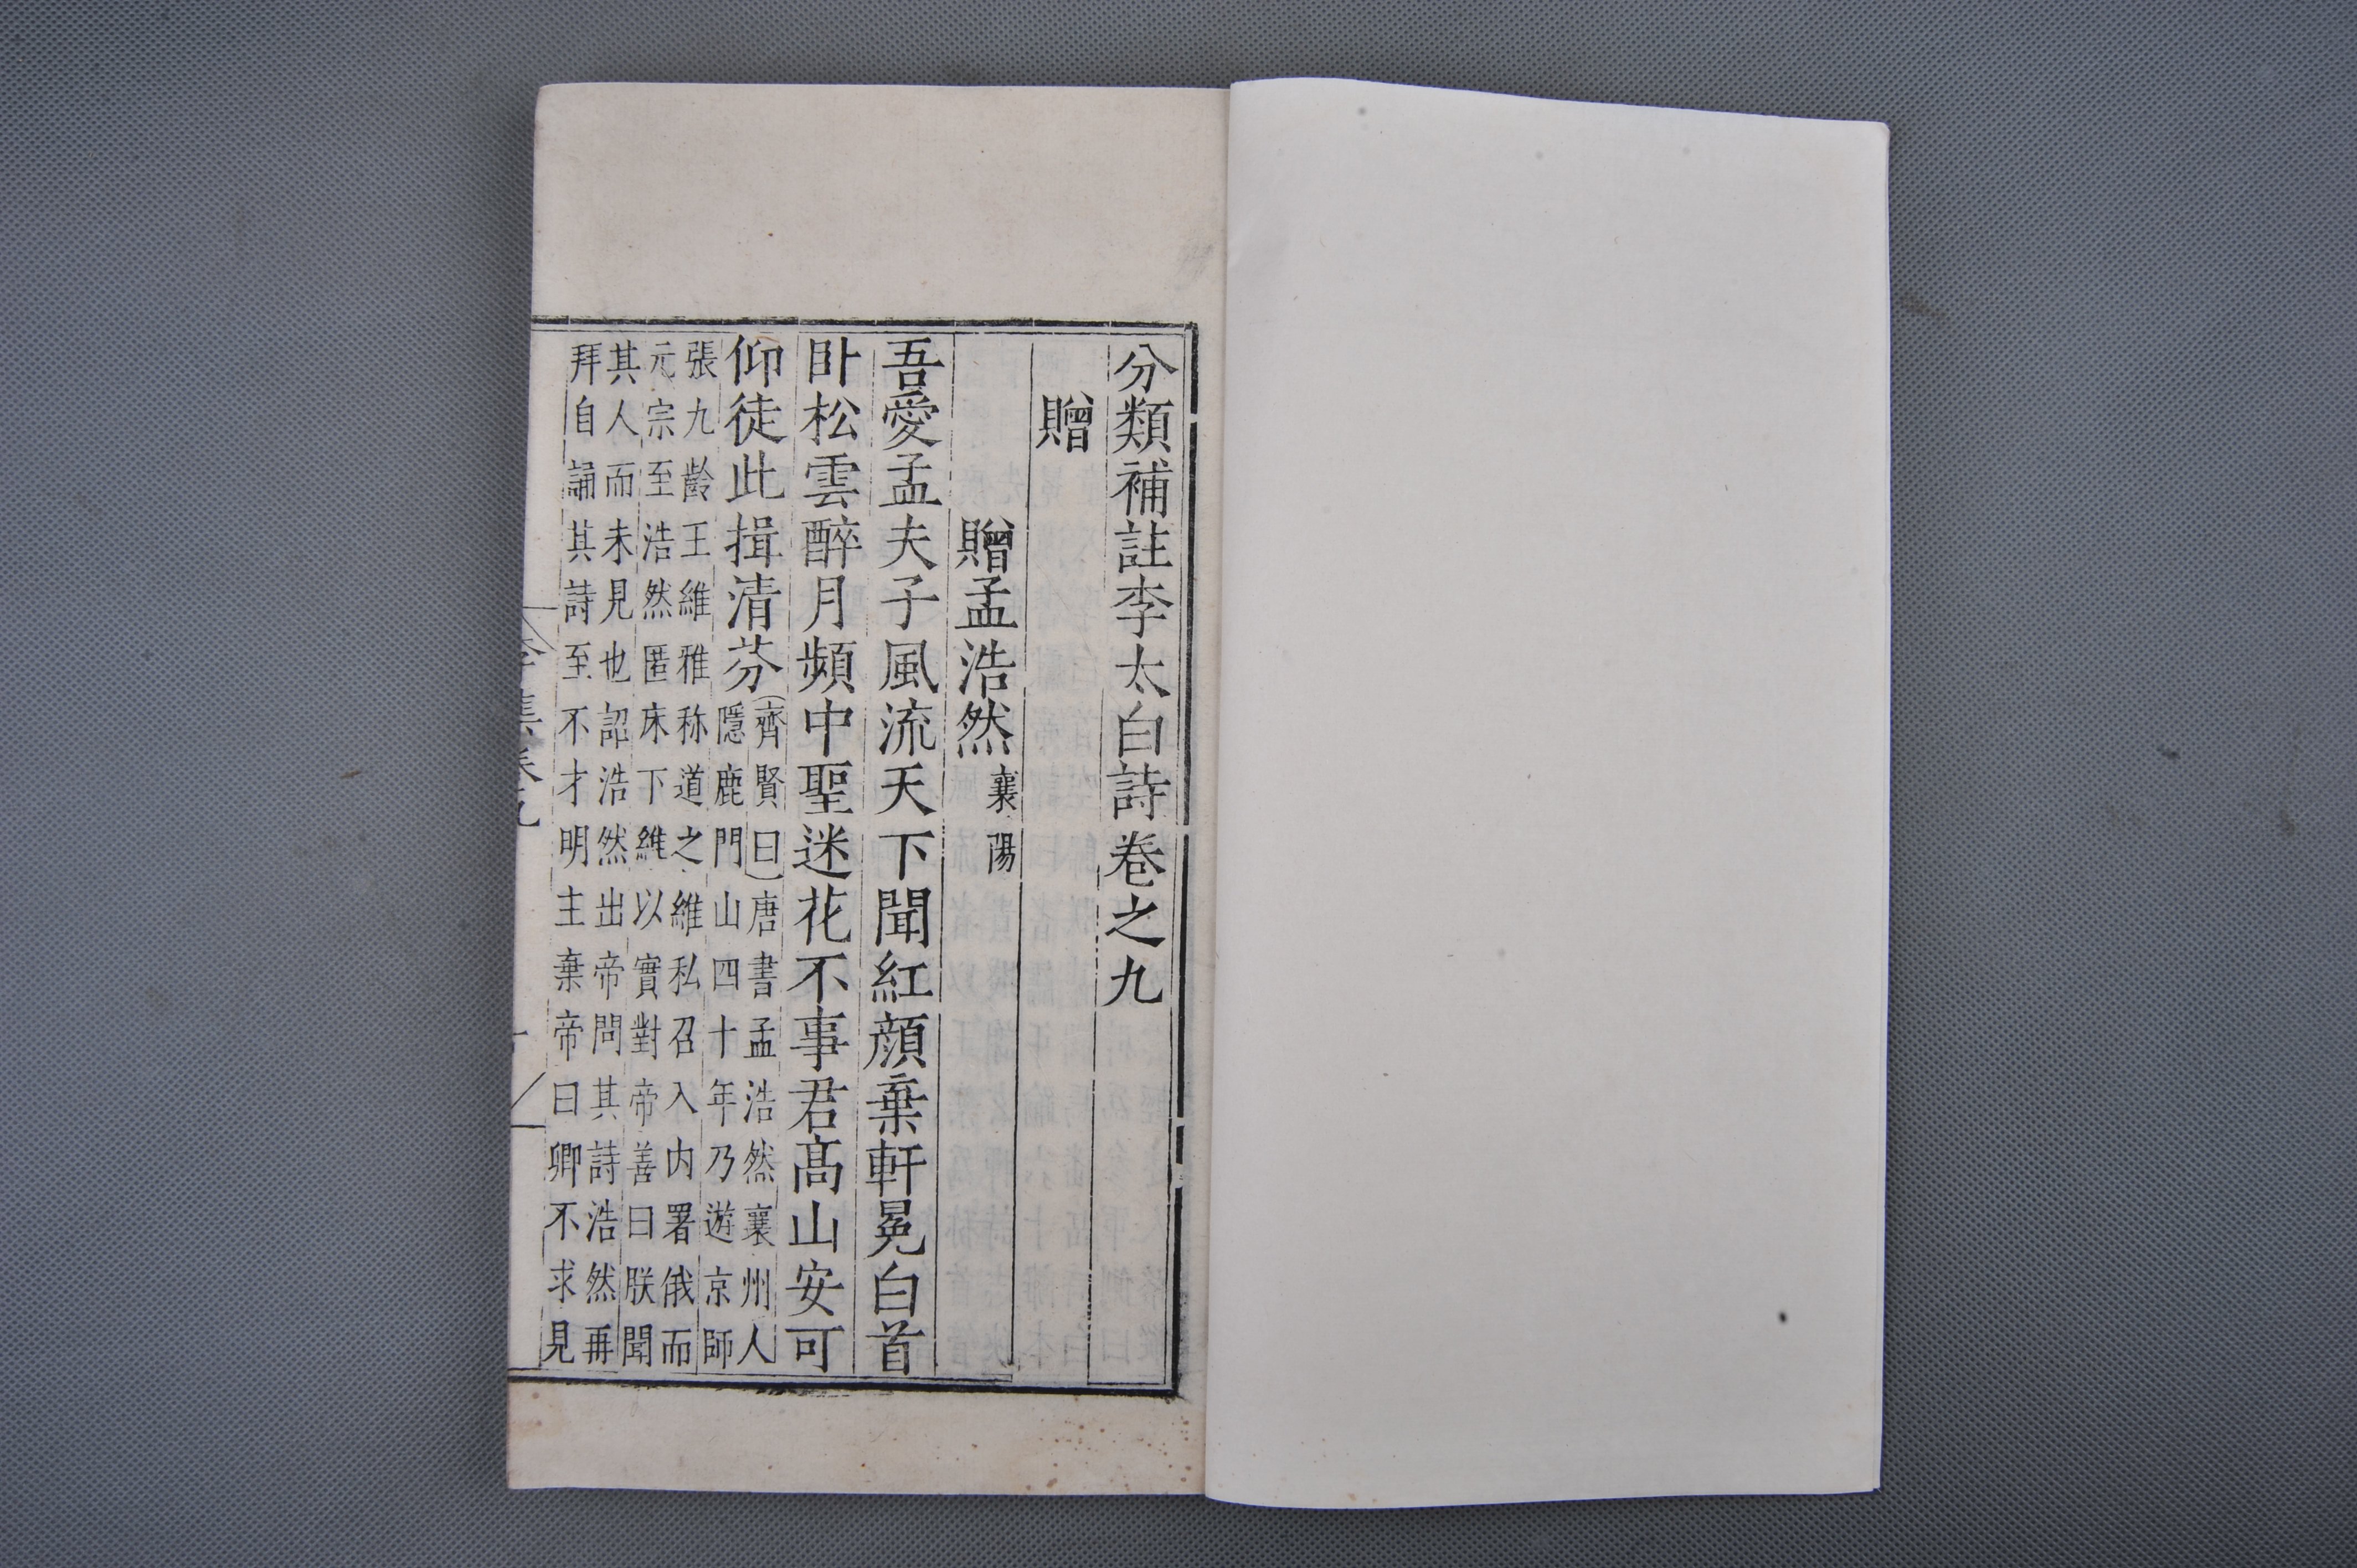 分類補註李太白詩卷之九
贈
贈孟浩然襄陽
吾愛孟夫子風流天下聞紅顔棄軒冕白首
卧松雲醉月頻中聖迷花不事君髙山安可
仰徒此揖清芬
齊賢曰唐書孟浩然襄州人
隱鹿門山四十年乃遊京師
張九齡王維雅称道之維私召入内署俄而
元宗至浩然匿床下維以實對帝善曰朕聞
其人而未見也詔浩然出帝問其詩浩然再
拜自誦其詩至不才明主棄帝曰卿不求見